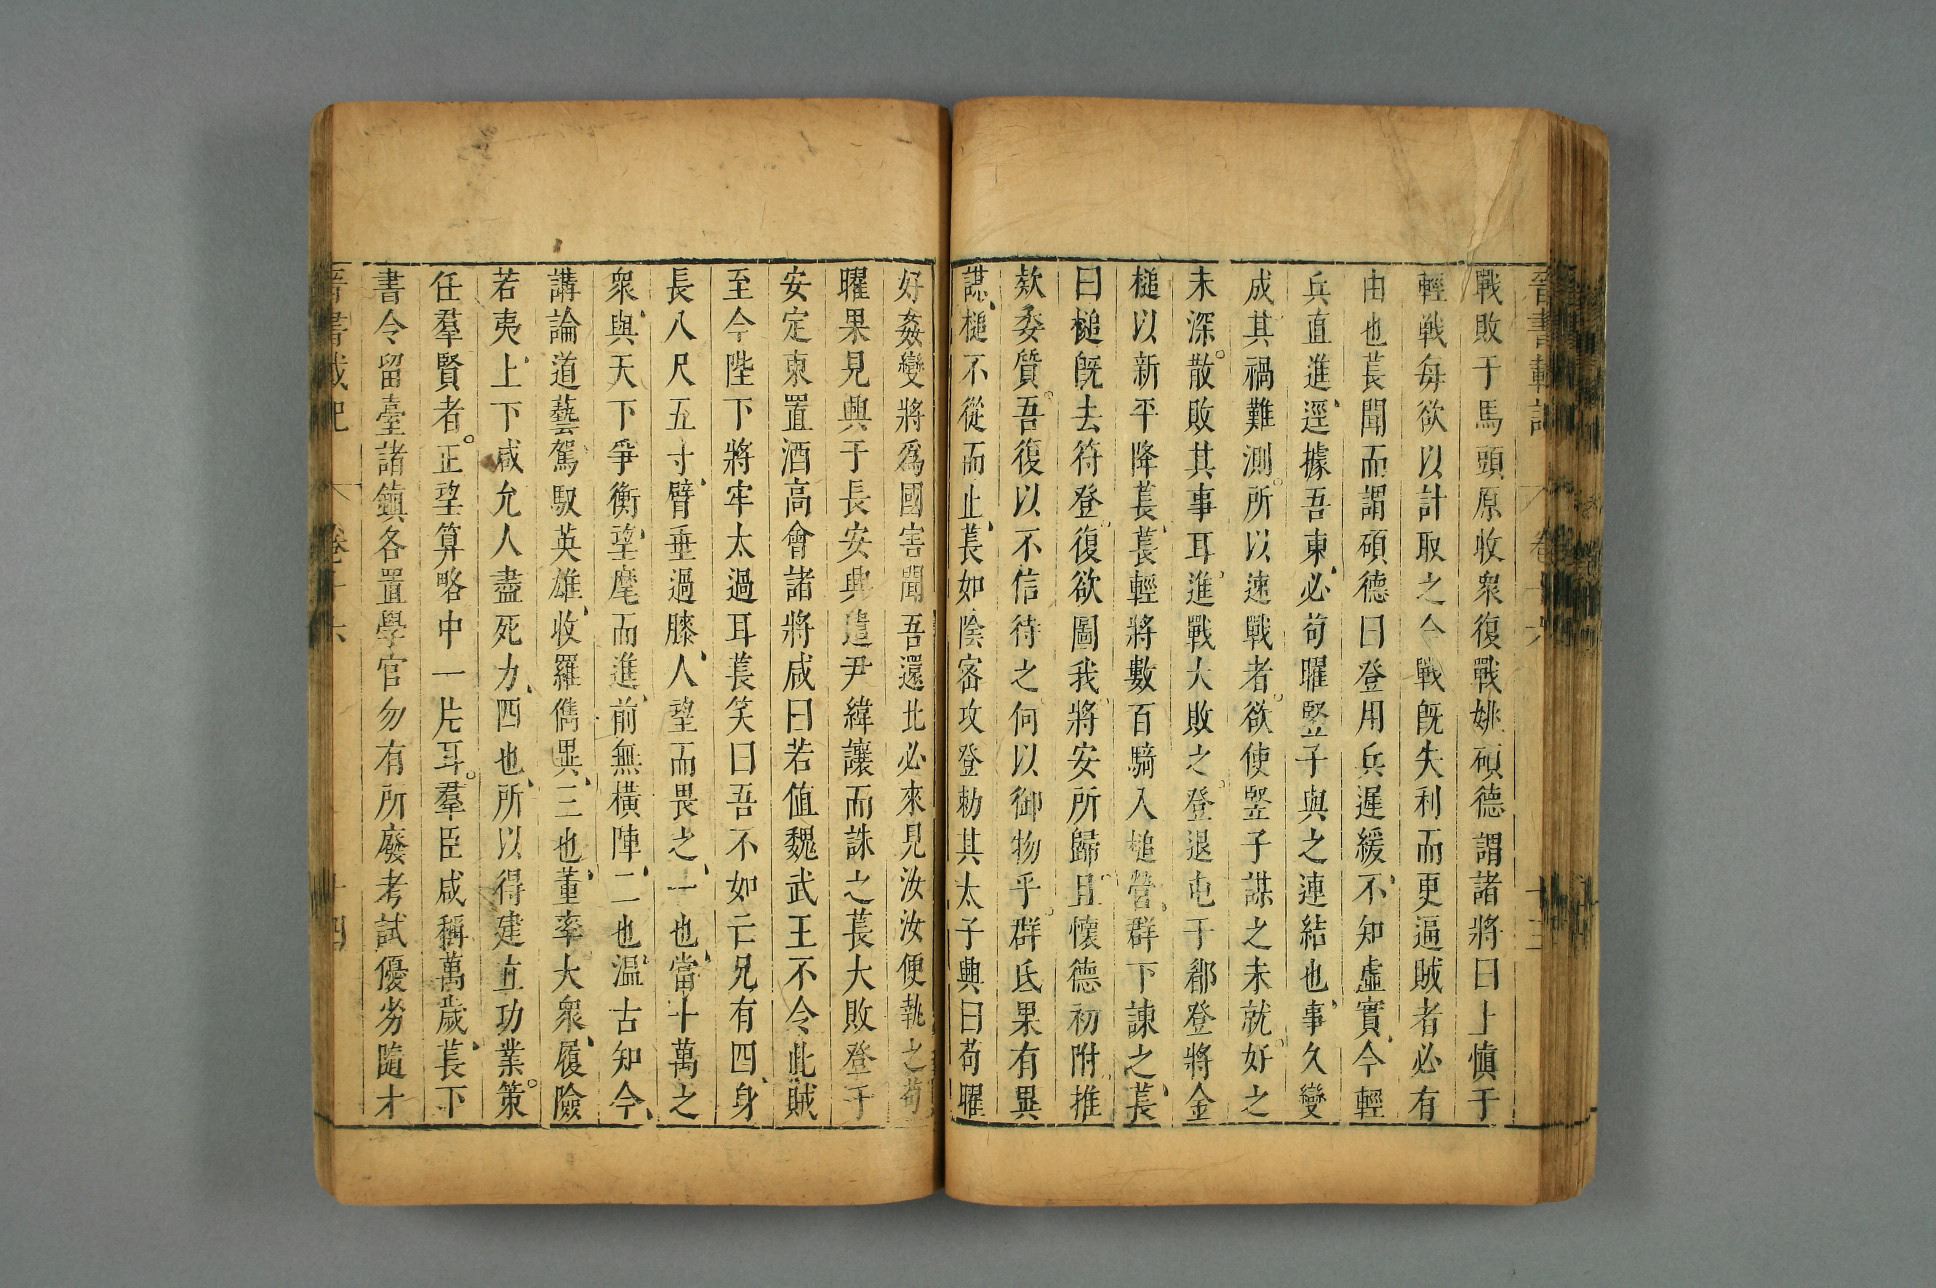 晉書載記 卷十六 十三
戰敗于馬頭原收衆復戰姚碩德謂諸將曰上慎于
輕戰每欲以計取之今戰旣失利而更逼賊者必有
由也萇聞而謂碩德曰登用兵遲緩不知虛實今輕
兵直進逕據吾東必苟曜竪子與之連結也事久變
成其禍難測所以速戰者欲使竪子謀之未就好之
未深散敗其事耳進戰大敗之登退屯于郿登將金
槌以新平降萇萇輕將數百騎入槌營群下諫之萇
曰槌旣去苻登復欲圖我將安所歸且懷德初附推
欵委質吾復以不信待之何以御物乎群氐果有異
謀槌不從而止萇如陰密攻登勅其太子興曰苟曜
好姦變將爲國害聞吾還北必來見汝汝便執之苟
曜果見興于長安興遣尹緯讓而誅之萇大敗登于
安定東置酒高會諸將咸曰若值魏武王不令此賊
至今陛下將牢太過耳萇笑曰吾不如亡兄有四身
長八尺五寸臂垂過膝人望而畏之一也當十萬之
衆與天下爭衡望麾而進前無橫陣二也温古知今
講論道藝駕馭英雄收羅儁異三也董率大衆履險
若夷上下咸允人盡死力四也所以得建立功業策
任羣賢者正望算略中一片耳羣臣咸稱萬歲萇下
書令留臺諸鎮各置學官勿有所廢考試優劣隨才
晋書載記 卷十六 十四